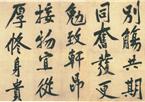 別觴共期
同奮發更
勉致軒昂
接物宜從
厚修身貴